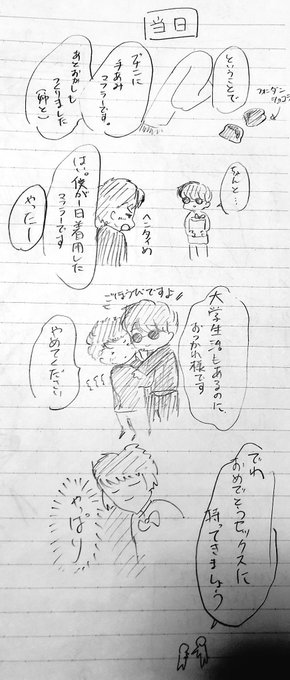 当日
ということで
フォンダン
ショコラ
プレゼントに
手あみ
マフラーです。
あとおかしも
つくりました
(姉と)
なんと…
ヘンタイめ
はい。僕が一日着用した
マフラーです
やったー
ごほうびですよ
大学生活もあるのに、
おつかれ様です
やめてください
でわ
おめでとうセックスに
持ってきましょう
やっぱり